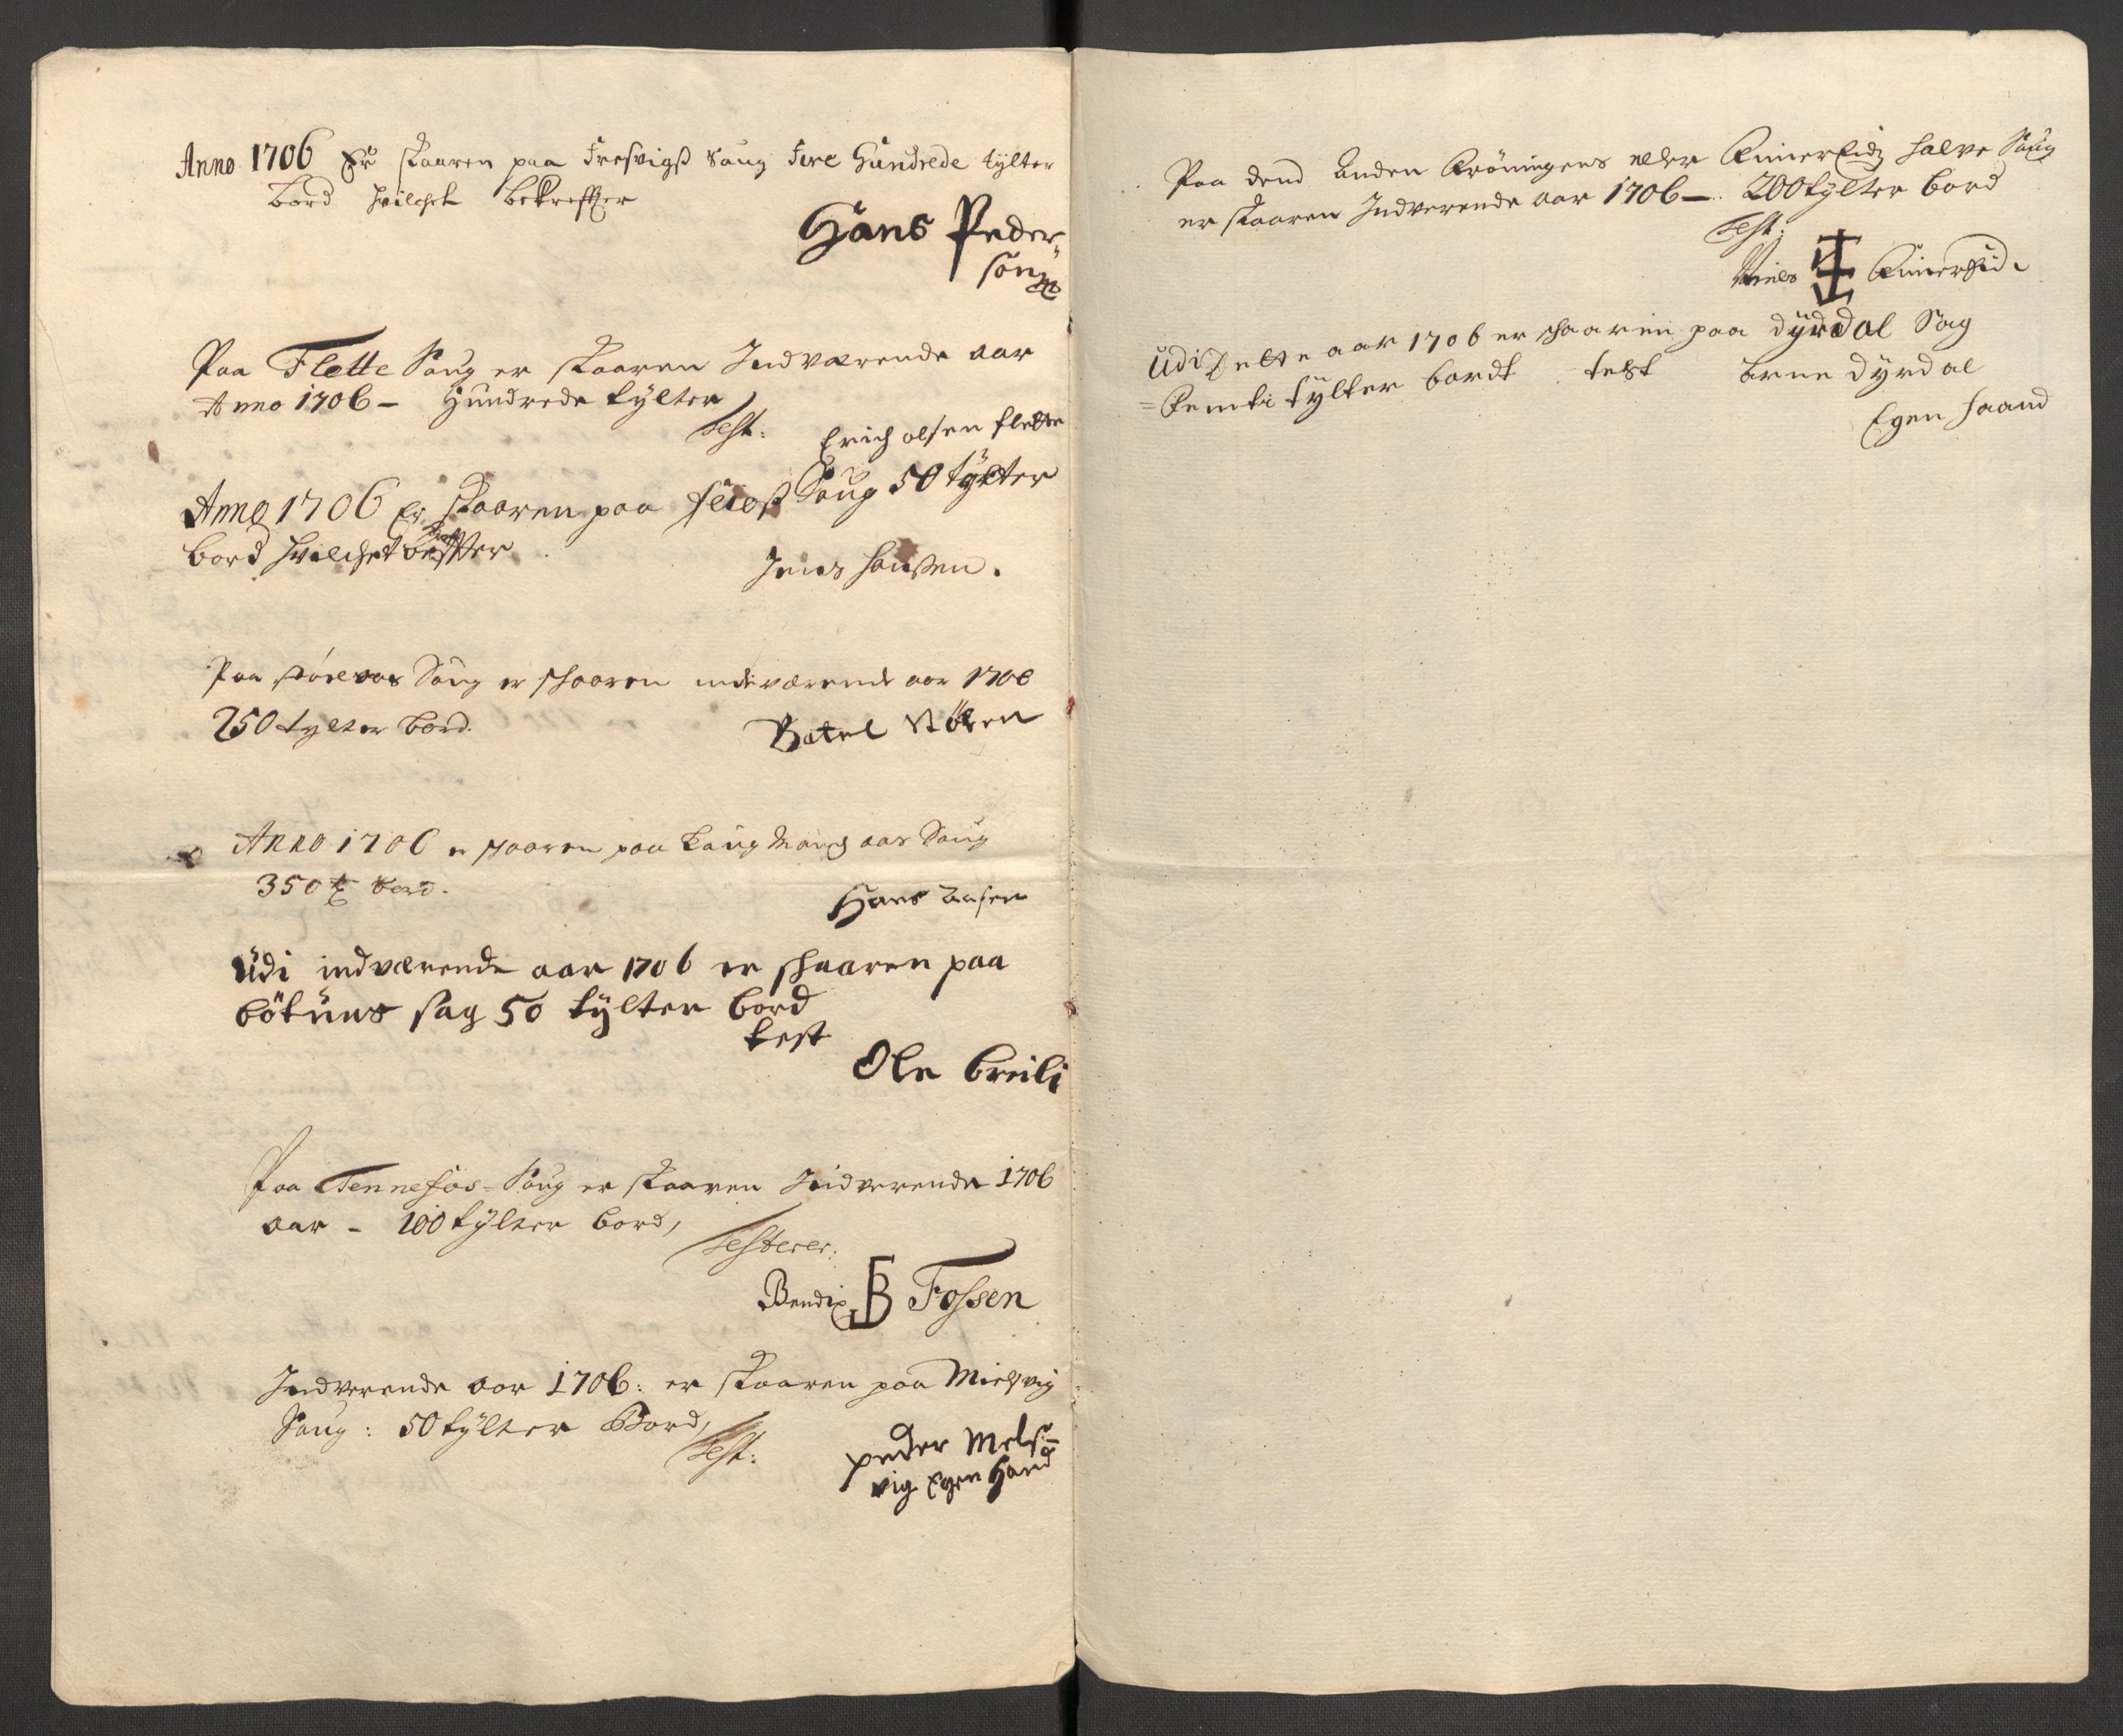 Anno 1706 Er skaaren paa Fresvigß Saug Fire Hundrede tylter
bord hvilchet bekreffter
Hans Peder-
søn
Paa Flette Saug er skaaren Indværende aar
Anno 1706 - Hundrede tylter
Test:
Erich olsen flette
Anno 1706 Er skaaren paa feioß Saug 50 tylter
bord hvilchet bekreffter
Jens Hanßen.
Paa Saug er schaaren indeværende aar 1706
250 tylter bord.
Batel Nören
Anno 1706 er skaaren paa Saug
350 t bord.
Hans
Udi indværende aar 1706 er schaaren paa
bötuns sag 50 tylter bord
test
Ole breili
Paa Tennefos-Saug er skaaren Indverende 1706
aar - 100 tylter bord,
Testerer:
Bendix B Fossen
Indverende aar 1706: er skaaren paa Mielsvig
Saug: 50 tylter Bord,
Test:
peder Mels-
vig Egen Hand
Paa dend anden Kröningens eller halve Saug
er skaaren Indverende aar 1706 -. 200 tylter bord
Test:
Niels
Udi Dette aar 1706 er schaaren paa dyrdal Sag
femti tylter bordt test arne dyrdal
Egen haand